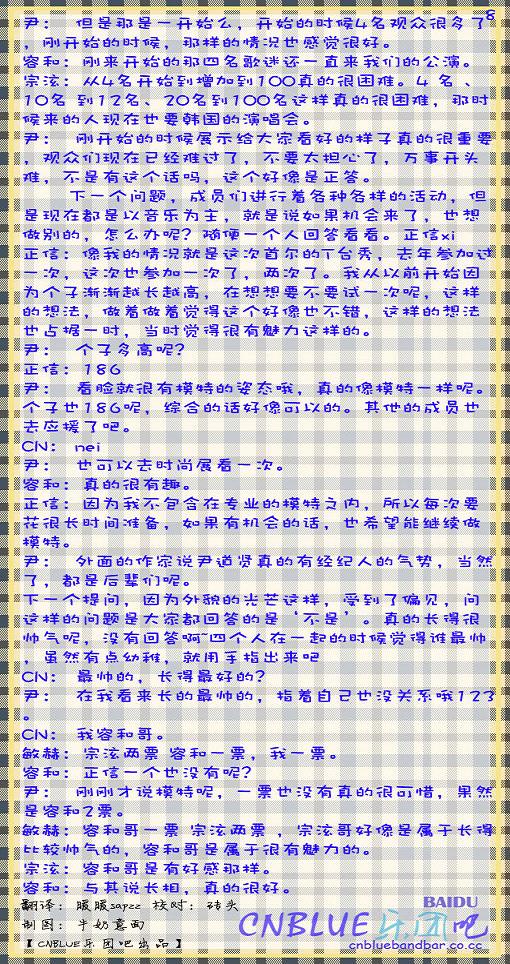 8
尹： 但是那是一开始么，开始的时候4名观众很多了
，刚开始的时候，那样的情况也感觉很好。
容和：刚来开始的那四名歌迷还一直来我们的公演。
宗泫：从4名开始到增加到100真的很困难。4 名 、
10名 到12名、20名到100名这样真的很困难，那时
候来的人现在也要韩国的演唱会。
尹： 刚开始的时候展示给大家看好的样子真的很重要
，观众们现在已经难过了，不要太担心了，万事开头
难，不是有这个话吗，这个好像是正答。
下一个问题，成员们进行着各种各样的活动，但
是现在都是以音乐为主，就是说如果机会来了，也想
做别的，怎么办呢？随便一个人回答看看。正信xi
正信：像我的情况就是这次首尔的T台秀，去年参加过
一次，这次也参加一次了，两次了。我从以前开始因
为个子渐渐越长越高，在想想要不要试一次呢，这样
的想法，做着做着觉得这个好像也不错，这样的想法
也占据一时，当时觉得很有魅力这样的。
尹： 个子多高呢？
正信：186
尹： 看脸就很有模特的姿态哦，真的像模特一样呢。
个子也186呢，综合的话好像可以的。其他的成员也
去应援了吧。
CN： nei
尹： 也可以去时尚展看一次。
容和：真的很有趣。
正信：因为我不包含在专业的模特之内，所以每次要
花很长时间准备，如果有机会的话，也希望能继续做
模特。
尹： 外面的作家说尹道贤真的有经纪人的气势，当然
了，都是后辈们呢。
下一个提问，因为外貌的光芒这样，受到了偏见，问
这样的问题是大家都回答的是‘不是’。真的长得很
帅气呢，没有回答啊~四个人在一起的时候觉得谁最帅
，虽然有点幼稚，就用手指出来吧
CN： 最帅的，长得最好的？
尹： 在我看来长的最帅的，指着自己也没关系哦123
。
CN： 我容和哥。
敏赫：宗泫两票 容和一票，我一票。
容和：正信一个也没有呢？
尹： 刚刚才说模特呢，一票也没有真的很可惜，果然
是容和2票。
敏赫：容和哥一票 宗泫两票 ，宗泫哥好像是属于长得
比较帅气的，容和哥是属于很有魅力的。
宗泫：容和哥是有好感那样。
容和：与其说长相，真的很好。
翻译：暖暖sapzz 校对：砖头
制图：牛奶意面
【CNBLUE乐团吧出品】
BAIDU
CNBLUE乐团吧
cnbluebandbar.co.cc